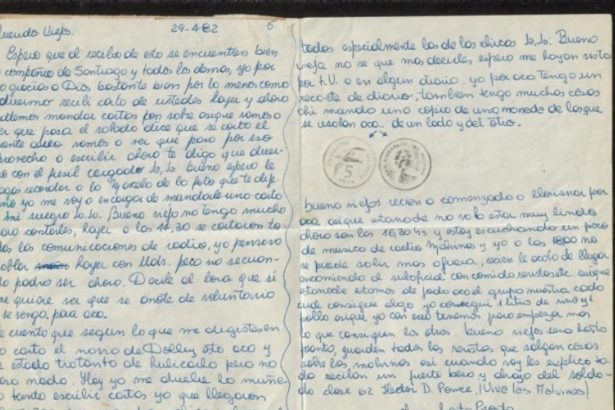 Queridos Viejos. 29-4-82 5
Espero que al recibo de esto se encuentren bien
compañia de Santiago y todos los demas, yo por
gracias a Dios bastante bien por lo menos como
recibi carta de ustedes hayer y ahora
mandar cartas por sobre asique vamos a
ver que pasa el sabado dice que se corta el
puente aereo vamos a ver que pasa por eso
aprovecho a escribir ahora te digo que
con el fusil cargado Ja, Ja. bueno espero le
hagas recordar a la de la foto que te
yo me voy a encargar de mandarle una carta
mi suegro Ja. Ja. Bueno viejos no tengo mucho
para contarles, hayer a las 17,30 se cortaron
las comunicaciones de radio, yo pensaba
hablar hayer con Uds. pero no se cuan-
do podra ser ahora. Decile al lora que si
quiere ver que se anote de voluntario
se venga para aca.
cuento que segun lo que me digistes en
carta el novio de Dolly esta aca y
estado tratando de hubicarlo pero no
modo. Hoy ya me duele la muñe-
ca tanto escribir cartas ya que llegaron
todas especialmente las de las chicas Ja, Ja. Bueno
vieja no se que mas decirles espero me hayan visto
por T.V. o en algun diario, yo por aca tengo un
recorte de diario, tambien tengo muchas cosas
ahi mando una copia de una moneda de las que
se usaban aca. de un lado y del otro.
5
bueno viejos recien a comenzado a lloviznar por
aca asique esta noche no va a estar muy linda
ahora son las 16,30 hs y estoy escuchando un poco
de musica de radio Malvinas y ya a las 18,00 no
se puede salir mas afuera, recien le acabo de llegar
encomienda al suboficial con comida asique
esta noche estamos de joda aca el grupo nuestro cada
cual consigue algo yo consegui 1 litro de vino y 1
pollo asique ya con eso tenemos para empezar mas
lo que consiguen los otros. bueno viejos sera hasta
pronto, guarden todas las revistas que salgan cosas
sobre las malvinas asi cuando voy les explico todo
reciban un fuerte beso y abrazo del solda-
do clase 62 Hector D. Ponce ¡Viva las Malvinas!
hasta Pronto